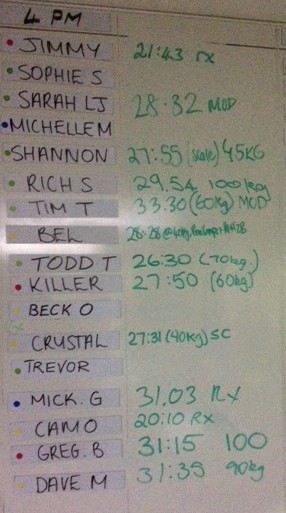 4 PM
JIMMY 21:43 rx
SOPHIE S
SARAH LJ 28.32 MOD
MICHELLE M
SHANNON 27:55 (scale) 45KG
RICH S 29.54 100kg
TIM T 33.30 (60kg) MOD
BEL 28:28
TODD T 26:30 (70kg)
KILLER 27:50 (60kg)
BECK O
CRUSTAL 27:31 (40kg) SC
TREVOR
MICK. G 31.03 Rx
CAMO 20:10 Rx
GREG. B 31:15 100
DAVE M 31:35 90kg